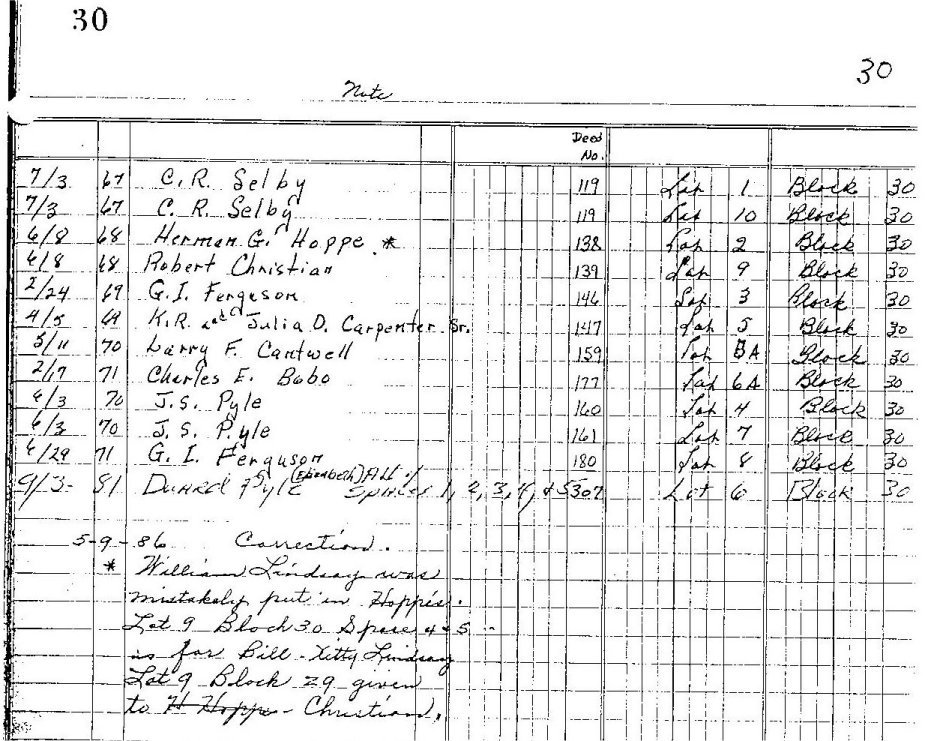 30
30
Note
Deed
No.
7/3 67 C. R. Selby 119 Lot 1 Block 30
7/3 67 C. R. Selby 119 Lot 10 Block 30
6/8 68 Herman G. Hoppe * 138 Lot 2 Block 30
6/8 68 Robert Christian 139 Lot 9 Block 30
2/24 69 G. I. Ferguson 146 Lot 3 Block 30
4/5 69 K.R. and Julia D. Carpenter Sr. 147 Lot 5 Block 30
5/11 70 Larry F. Cantwell 159 Lot 5A Block 30
2/17 71 Charles E. Bobo 177 Lot 6A Block 30
6/3 70 J. S. Pyle 160 Lot 4 Block 30
6/3 70 J. S. Pyle 161 Lot 7 Block 30
6/29 71 G. I. Ferguson 180 Lot 8 Block 30
9/3- 81 (Elizabeth) All of Spaces 1, 2, 3, 4, + 5 307 Lot 6 Block 30
5-9-86 Correction.
* William Lindsay was
mistakely put in Hoppe's.
Lot 9 Block 30 Space 4-5
is for Bill - Kitty Lindsay
Lot 9 Block 29 given
to H Hoppe - Christian.